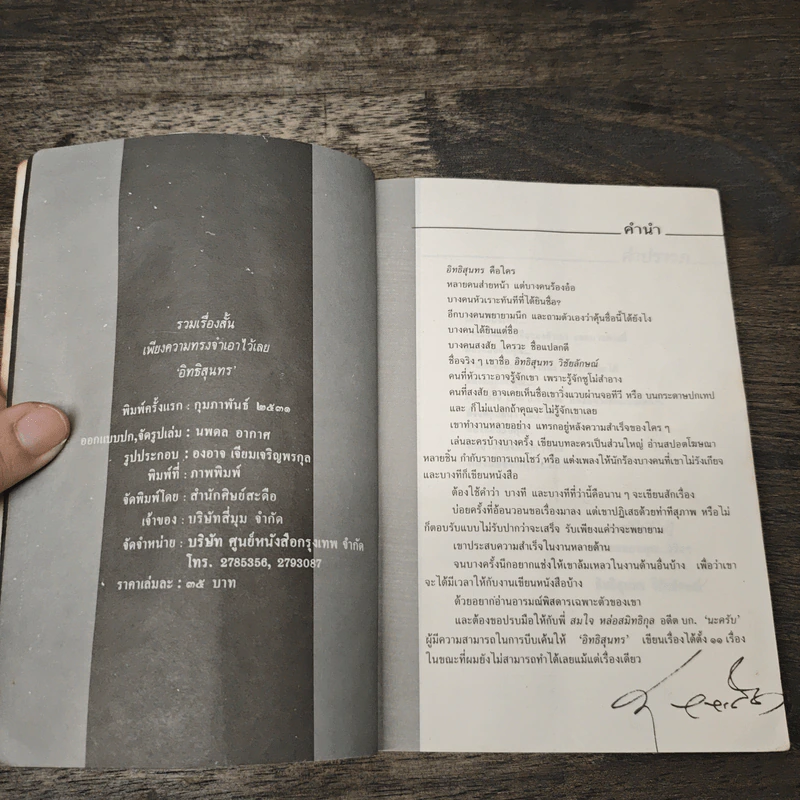 รวมเรื่องสั้น
เพียงความทรงจำเอาไว้เลย
'อิทธิสุนทร'
พิมพ์ครั้งแรก : กุมภาพันธ์ ๒๕๓๑
ออกแบบปก,จัดรูปเล่ม : นพดล อากาศ
รูปประกอบ : องอาจ เจียมเจริญพรกุล
พิมพ์ที่ : ภาพพิมพ์
จัดพิมพ์โดย : สำนักศิษย์สะดือ
เจ้าของ : บริษัทสี่มุม จำกัด
จัดจำหน่าย : บริษัท ศูนย์หนังสือกรุงเทพ จำกัด
โทร. 2785356, 2793087
ราคาเล่มละ : ๓๕ บาท
คำนำ
อิทธิสุนทร คือใคร
หลายคนส่ายหน้า แต่บางคนร้องอ้อ
บางคนหัวเราะทันทีที่ได้ยินชื่อ?
อีกบางคนพยายามนึก และถามตัวเองว่าคุ้นชื่อนี้ได้ยังไง
บางคนได้ยินแต่ชื่อ
บางคนสงสัย ใครวะ ชื่อแปลกดี
ชื่อจริง ๆ เขาชื่อ อิทธิสุนทร วิชัยลักษณ์
คนที่หัวเราะอาจรู้จักเขา เพราะรู้จักซูโม่สำอาง
คนที่สงสัย อาจเคยเห็นชื่อเขาวิ่งแวบผ่านจอทีวี หรือ บนกระดาษปกเทป
และ ก็ไม่แปลกถ้าคุณจะไม่รู้จักเขาเลย
เขาทำงานหลายอย่าง แทรกอยู่หลังความสำเร็จของใคร ๆ
เล่นละครบ้างบางครั้ง เขียนบทละครเป็นส่วนใหญ่ อ่านสปอตโฆษณา
หลายชิ้น กำกับรายการเกมโชว์ หรือ แต่งเพลงให้นักร้องบางคนที่เขาไม่รังเกียจ
และบางทีก็เขียนหนังสือ
ต้องใช้คำว่า บางที และบางทีที่ว่านี้คือนาน ๆ จะเขียนสักเรื่อง
บ่อยครั้งที่อ้อนวอนขอเรื่องมาลง แต่เขาปฏิเสธด้วยท่าทีสุภาพ หรือไม่
ก็ตอบรับแบบไม่รับปากว่าจะเสร็จ รับเพียงแค่ว่าจะพยายาม
เขาประสบความสำเร็จในงานหลายด้าน
จนบางครั้งนึกอยากแช่งให้เขาล้มเหลวในงานด้านอื่นบ้าง เพื่อว่าเขา
จะได้มีเวลาให้กับงานเขียนหนังสือบ้าง
ด้วยอยากอ่านอารมณ์พิสดารเฉพาะตัวของเขา
และต้องขอปรบมือให้กับพี่ สมใจ หล่อสมิทธิกุล อดีต บก. 'นะครับ'
ผู้มีความสามารถในการบีบเค้นให้ 'อิทธิสุนทร' เขียนเรื่องได้ตั้ง ๑๑ เรื่อง
ในขณะที่ผมยังไม่สามารถทำได้เลยแม้แต่เรื่องเดียว